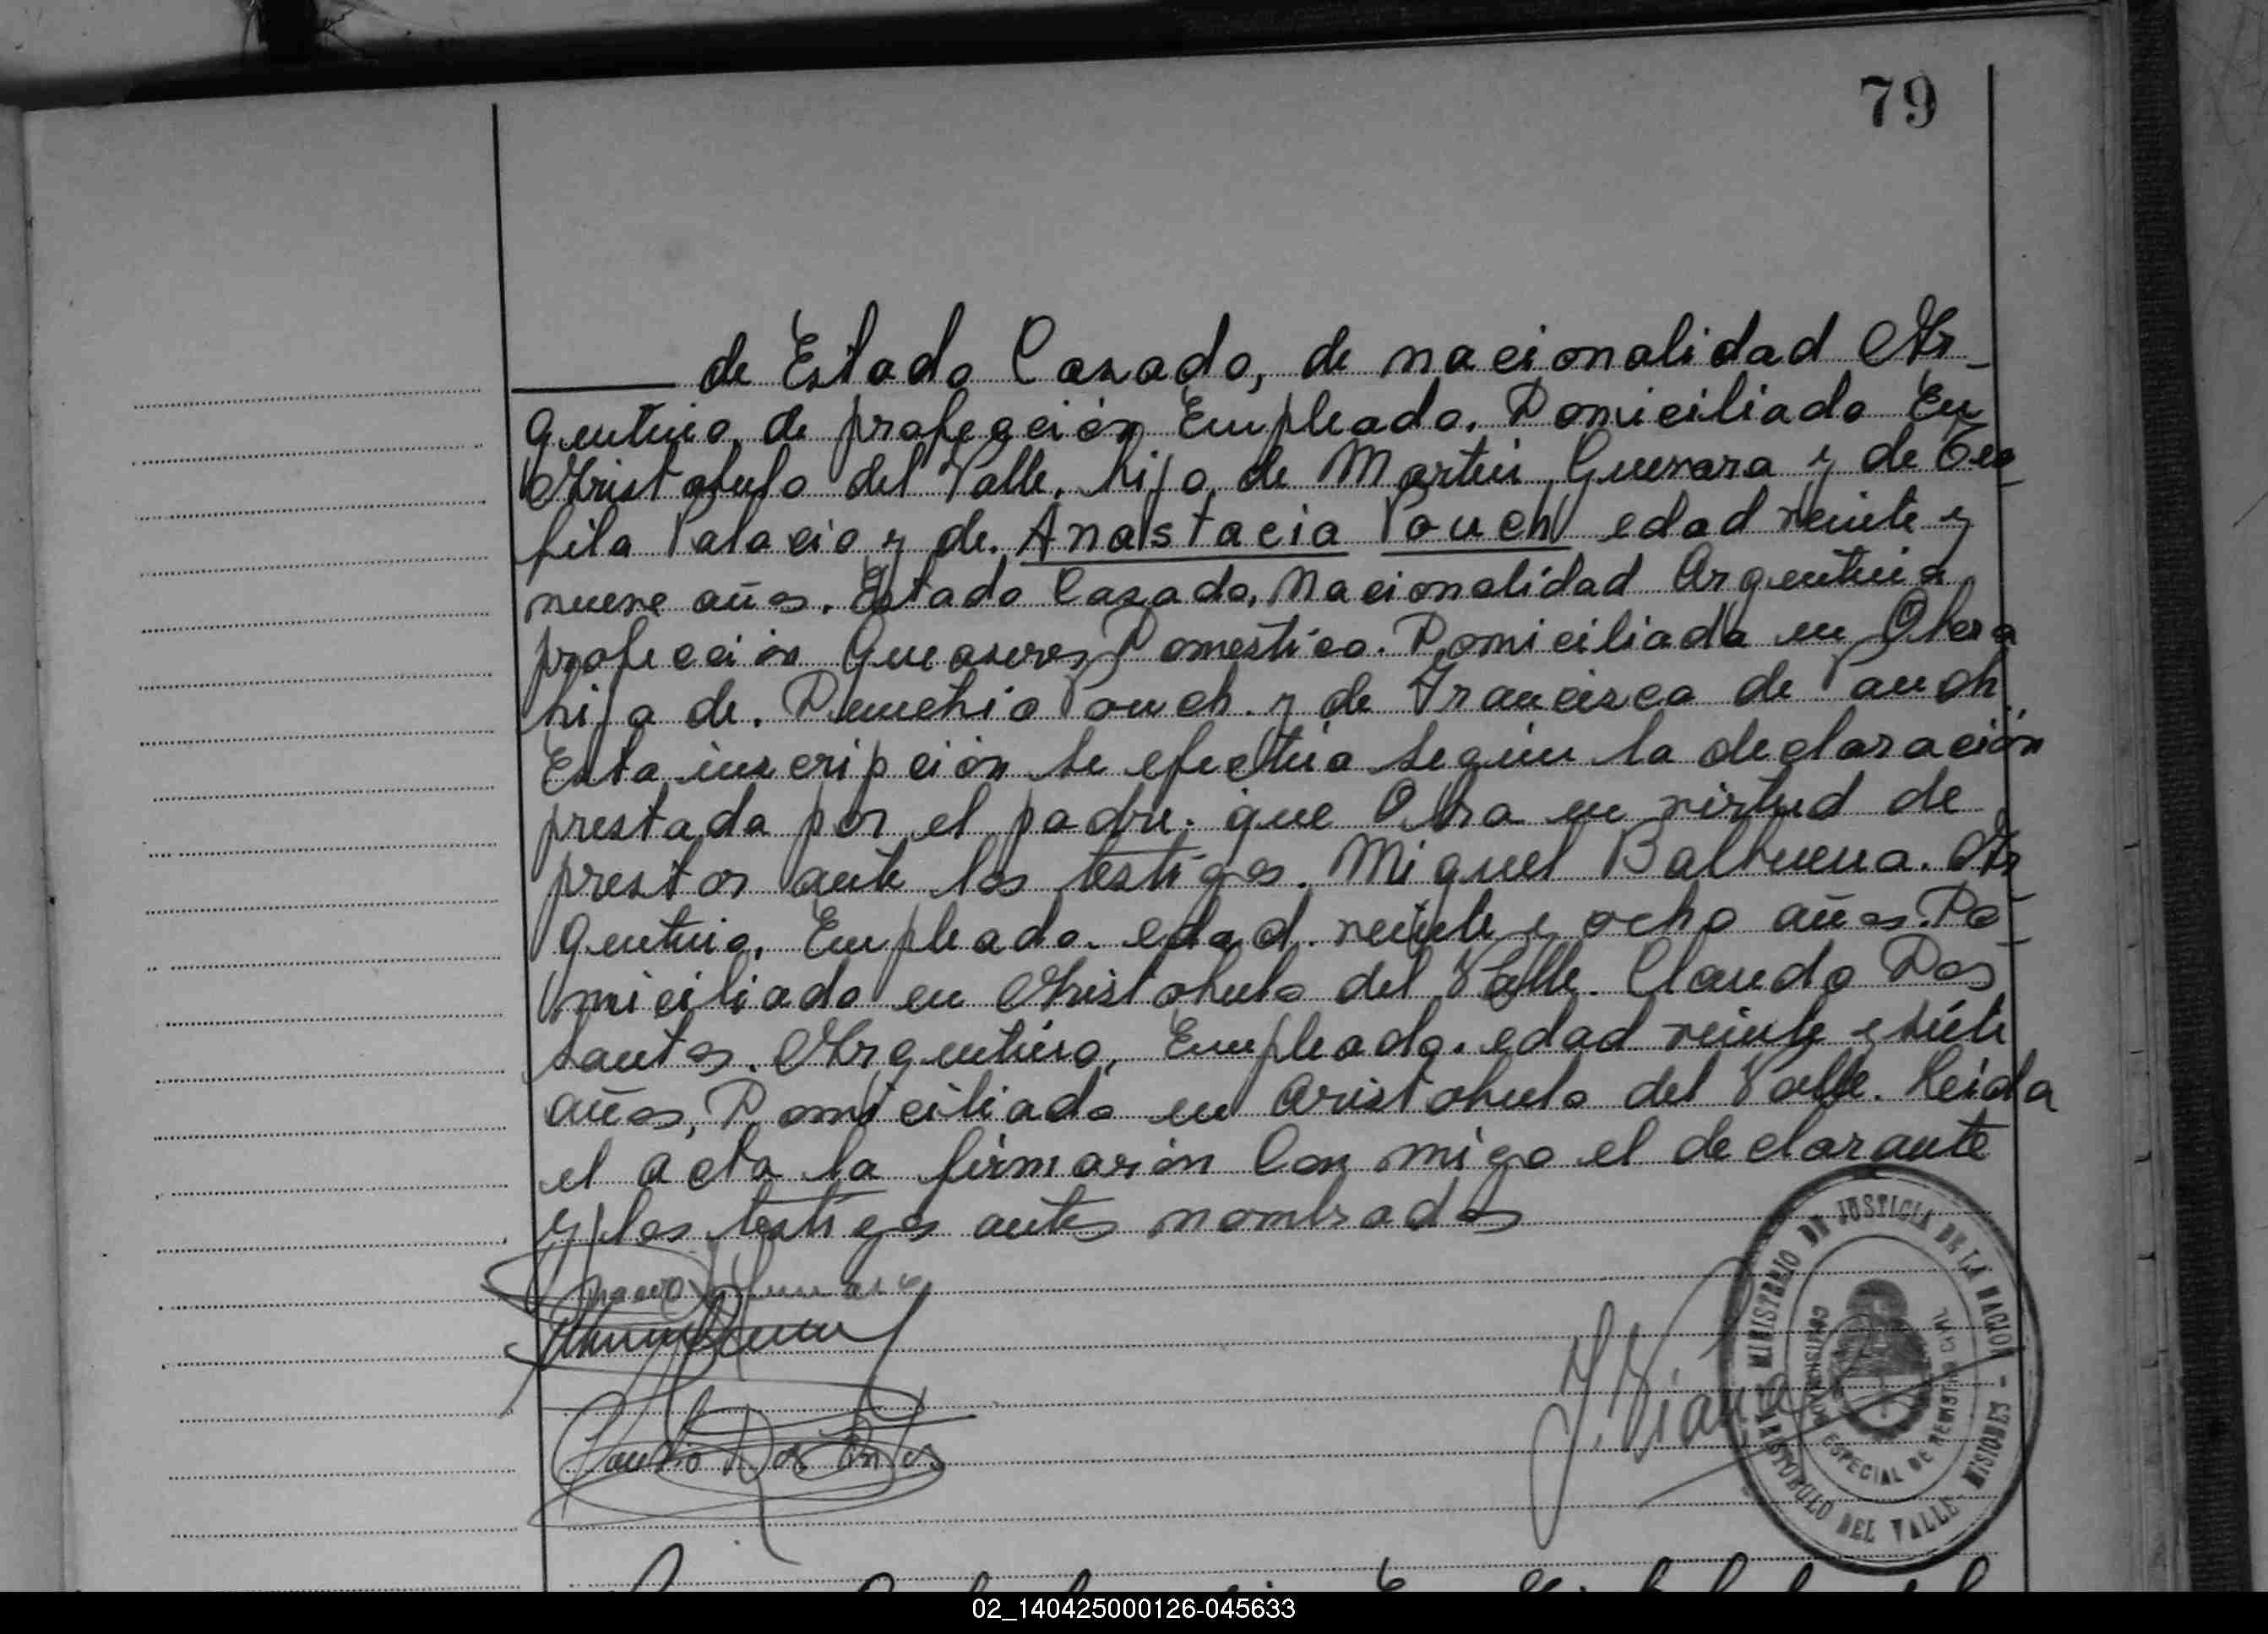 79
de Estado Casado, de nacionalidad Ar-
gentino, de profección Empleado. Domiciliado En
Aristobulo del Valle, hijo de Martin Guevara y de Teo-
fila Palacio y de. Anastacia Pouch edad veinte y
nueve años. Estado Casada, Nacionalidad Argentina
profección Domestico. Domiciliada en Obera
hija de. Pouch. y de Francisca de Pauch.
Esta inscripción se efectúa según la declaración
prestada por el padre. que Obra en virtud de
prestar ante los testigos. Miguel Balbuena. Ar-
gentino. Empleado. edad. veinte y ocho años. Do-
miciliado en Aristobulo del Valle. Claudo Dos
Santos. Argentino, Empleado. edad veinte y siete
años, Domiciliado en Aristobulo del Valle. Leida
el acta la firmarón Con migo el declarante
y los testigos antes nombrados
Claudio Dos Santos
J. Viana
MINISTERIO DE JUSTICIA DE LA NACION
ESPECIAL DE REGISTRO CIVIL
ARISTOBULO DEL VALLE - MISIONES -
02_140425000126-045633